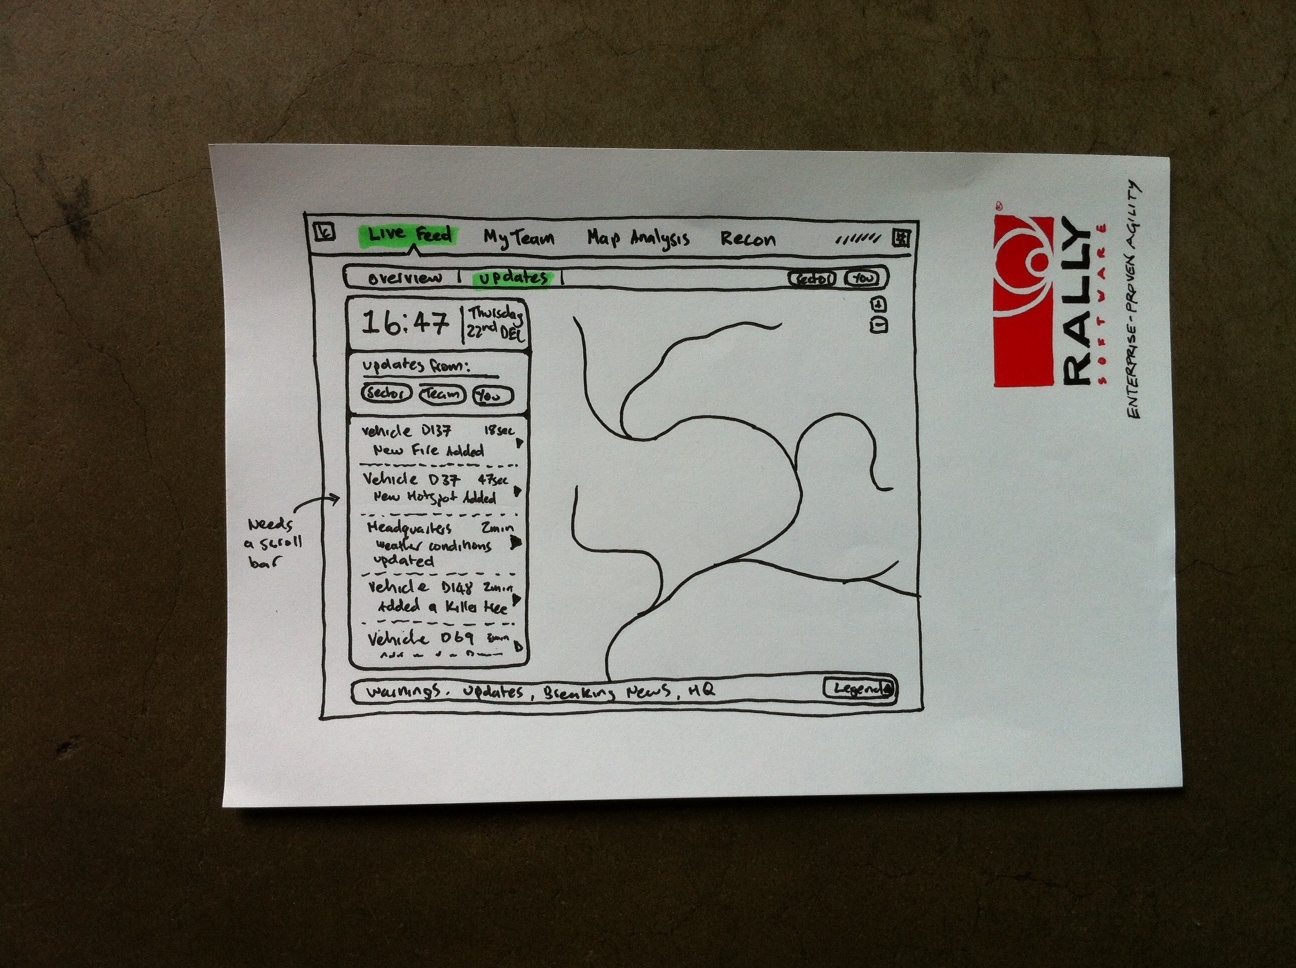 Live Feed My Team Map Analysis Recon
overview updates Sector You
16:47 Thursday
22nd DEC
+
-
updates from:
Sector Team You
Vehicle D137 18sec
New Fire Added
Vehicle D37 47sec
New Hotspot Added
Headquarters 2min
weather conditions
updated
Vehicle D148 2min
Added a Killer tree
Vehicle D69
Needs
a scroll
bar
Warnings, updates, Breaking News, HQ Legend
RALLY
SOFTWARE
®
ENTERPRISE-PROVEN AGILITY